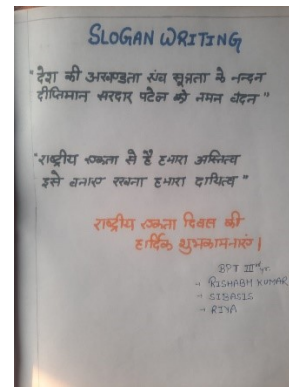 SLOGAN WRITING
"देश की अखण्डता एंव सूत्रता के नन्दन
दीप्तिमान सरदार पटेल को नमन वंदन"
"राष्ट्रीय एकता से है हमारा अस्तित्व
इसे बनाए रखना हमारा दायित्व"
राष्ट्रीय एकता दिवस की
हार्दिक शुभकामनाएं।
BPT IIIrd yr.
→ RISHABH KUMAR
→ SIBASIS
→ RIYA